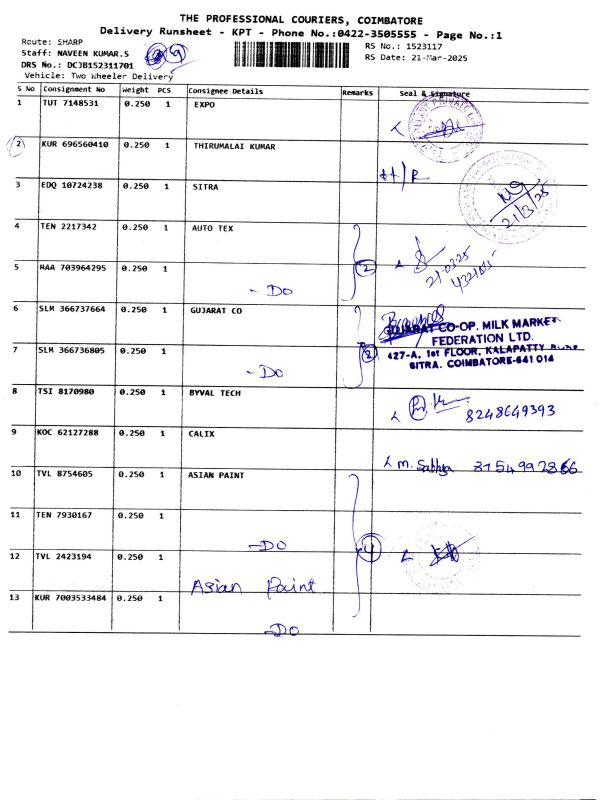 THE PROFESSIONAL COURIERS, COIMBATORE
Delivery Runsheet - KPT - Phone No.:0422-3505555 - Page No.:1
Route: SHARP
RS No.: 1523117
Staff: NAVEEN KUMAR.S
RS Date: 21-Mar-2025
DRS No.: DCJB152311701
Vehicle: Two Wheeler Delivery
S No Consignment No Weight PCS Consignee Details Remarks Seal & Signature
1 TUT 7148531 0.250 1 EXPO
2 KUR 696560410 0.250 1 THIRUMALAI KUMAR
H/R
3 EDQ 10724238 0.250 1 SITRA
21/3/25
4 TEN 2217342 0.250 1 AUTO TEX
2
21-03-25
5 MAA 703964295 0.250 1
- DO
6 SLM 366737664 0.250 1 GUJARAT CO
GUJARAT CO-OP. MILK MARKET
FEDERATION LTD.
427-A, 1st FLOOR, KALAPATTY ROAD
SITRA. COIMBATORE-641 014
7 SLM 366736805 0.250 1
2
- DO
8 TSI 8170980 0.250 1 BYVAL TECH
8248649393
9 KOC 62127288 0.250 1 CALIX
10 TVL 8754605 0.250 1 ASIAN PAINT
11 TEN 7930167 0.250 1
- DO
4
12 TVL 2423194 0.250 1
Asian Paint
13 KUR 7003533484 0.250 1
- DO